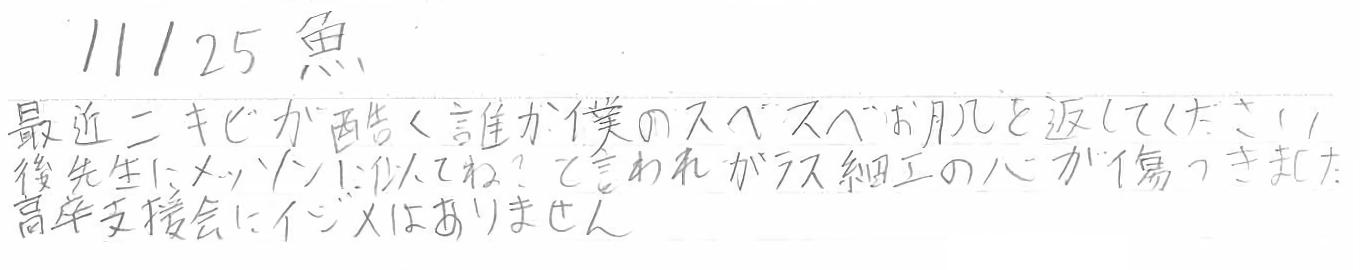 11/25 魚
最近ニキビが酷く誰か僕のスベスベお肌を返してください
後先生にメッソンに似てね?と言われガラス細工の心が傷つきました
高卒支援会にイジメはありません